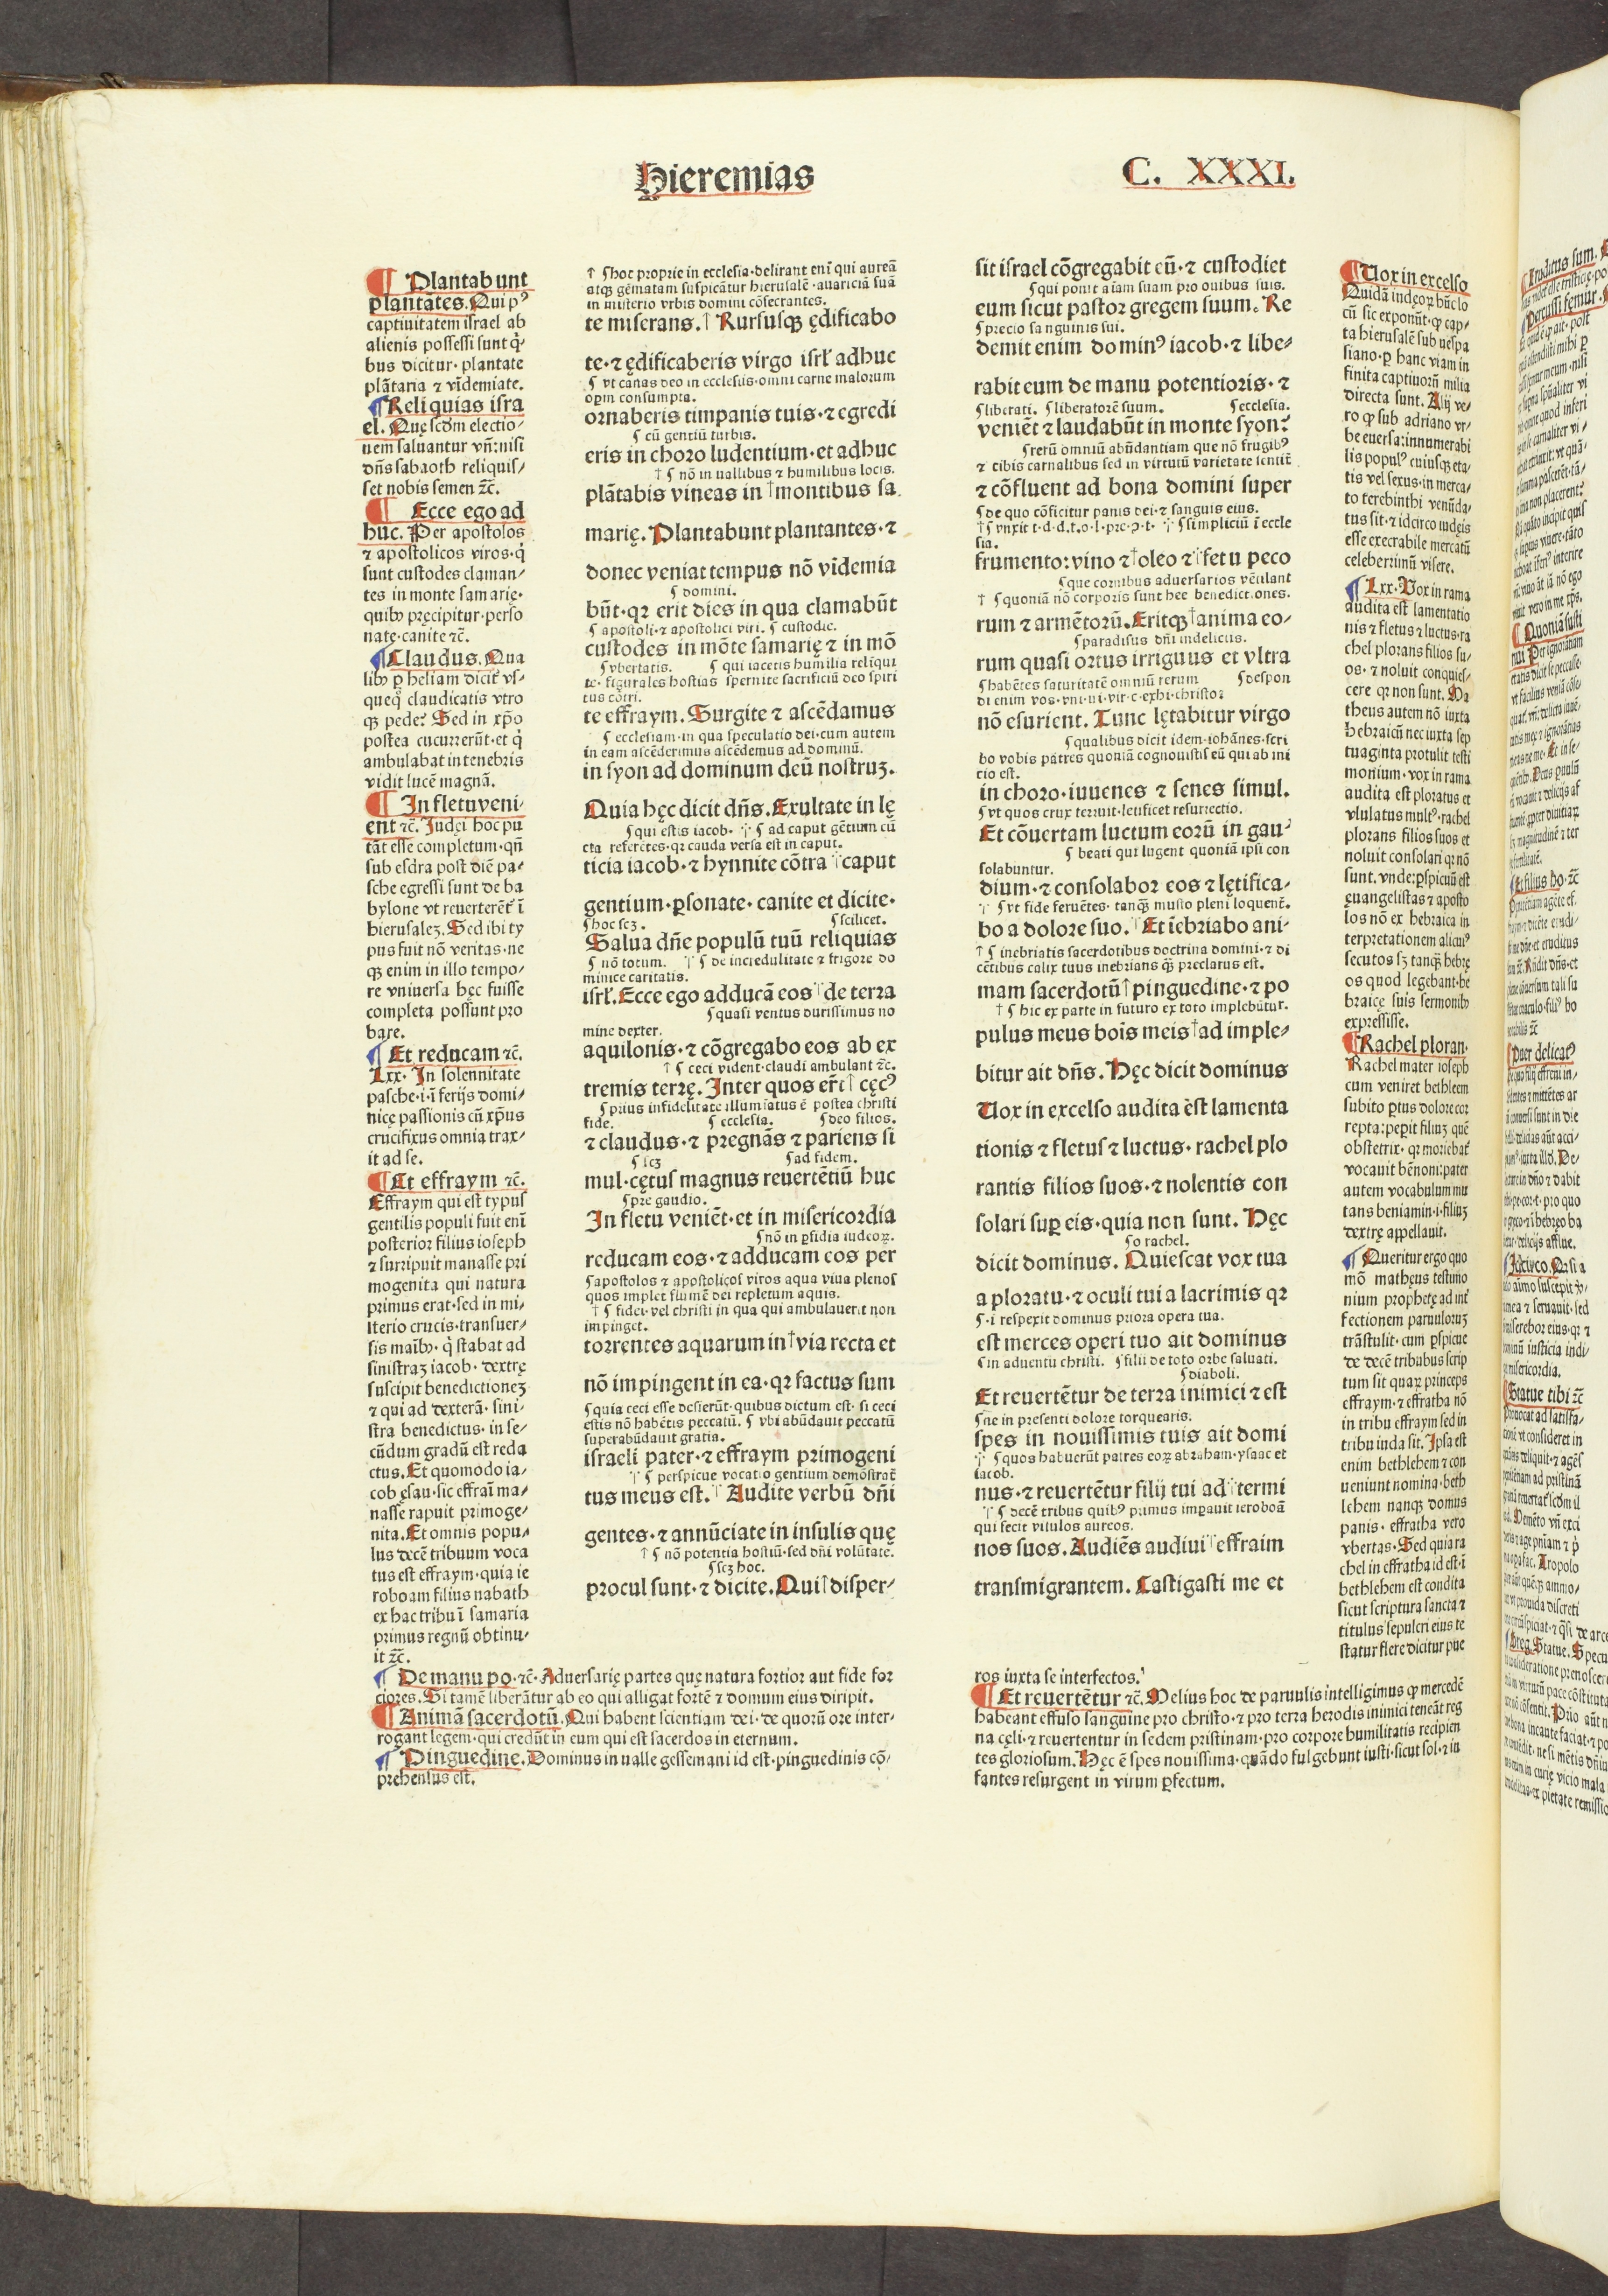 Hieremias
C. XXXI.
¶ Plantabunt
plantātes. Qui pꝰ
captiuitatem israel ab
alienis possessi sunt q̇
bus dicitur· plantate
plātaria ⁊ vīdemiate.
¶ Reliquias isra
el. Quę scd̄m electio⸗
nem saluantur vn̄: nisi
dn̄s sabaoth reliquis⸗
set nobis semen ⁊c̄.
¶ Ecce ego ad
huc. Per apostolos
⁊ apostolicos viros· q̇
sunt custodes claman⸗
tes in monte samarię·
quibꝫ pręcipitur· perso
nate· canite ⁊c̄.
¶ Claudus. Qua
libꝫ ꝑ heliam dicit᷑ vs⸗
queq̊ claudicatis vtro
qꝫ pede? Sed in xp̄o
postea cucurrerūt· et q̇
ambulabat in tenebris
vidit lucē magnā.
¶ In fletu veni⸗
ent ⁊c̄. Iudęi hoc pu
tāt esse completum· qn̄
sub esdra post diē pa⸗
sche egressi sunt de ba
bylone vt reuerterēt᷑ ī
hierusaleꝫ. Sed ibi ty
pus fuit nō veritas· ne
qꝫ enim in illo tempo⸗
re vniuersa hęc fuisse
completa possunt pro
bare.
¶ Et reducam ⁊c̄.
Lxx. In solennitate
pasche· i· ī ferijs domi⸗
nicę passionis cū xp̄us
crucifixus omnia trax⸗
it ad se.
¶ Et effraym ⁊c̄.
Effraym qui est typus
gentilis populi fuit enī
posterior filius ioseph
⁊ surripuit manasse pri
mogenita qui natura
primus erat· sed in mi⸗
sterio crucis· transuer⸗
sis maībꝫ· q̇ stabat ad
sinistraꝫ iacob· dextrę
suscipit benedictioneꝫ
⁊ qui ad dexterā· sini⸗
stra benedictus· in se⸗
cūdum gradū est reda
ctus. Et quomodo ia⸗
cob ęsau· sic effraī ma⸗
nasse rapuit primoge⸗
nita. Et omnis popu⸗
lus decē tribuum voca
tus est effraym· quia ie
roboam filius nabath
ex hac tribu ī samaria
primus regnū obtinu⸗
it ⁊c̄.
† ¶ hoc proprie in ecclesia· delirant enī qui aureā
atqꝫ gēmatam suspicātur hierusalē· auariciā suā
in misterio vrbis domini cōsecrantes.
te miserans.† Rursusqꝫ ędificabo
te· ⁊ ędificaberis virgo isrl̓ adhuc
¶ vt canas deo in ecclesiis· omni carne malorum
opꝫm consumpta.
ornaberis timpanis tuis· ⁊ egredi
¶ cū gentiū turbis.
eris in choro ludentium· et adhuc
† ¶ nō in uallibus ⁊ humilibus locis.
plātabis vineas in †montibus sa
marię. Plantabunt plantantes· ⁊
donec veniat tempus nō vīdemia
¶ domini.
būt· qꝛ erit dies in qua clamabūt
¶ apostoli· ⁊ apostolici viri. ¶ custodie.
custodes in mōte samarię ⁊ in mō
¶ vbertatis. ¶ qui iacetis humilia reliqui
te· figurales hostias spernite sacrificiū deo spiri
tus cōtri.
te effraym. Surgite ⁊ ascēdamus
¶ ecclesiam· in qua speculatio dei· cum autem
in eam ascēderimus ascēdemus ad dominū.
in syon ad dominum deū nostruꝫ.
Quia hęc dicit dn̄s. Exultate in lę
¶ qui estis iacob. ¶ ad caput gētium cū
cta referētes· qꝛ cauda versa est in caput.
ticia iacob· ⁊ hynnite cōtra †caput
gentium· ꝑsonate· canite et dicite·
¶ hoc scꝫ. ¶ scilicet.
Salua dn̄e populū tuū reliquias
¶ nō totum. ¶ de incredulitate ⁊ frigore do
minice caritatis.
isrl̓. Ecce ego adducā eos †de terra
¶ quasi ventus durissimus no
mine dexter.
aquilonis· ⁊ cōgregabo eos ab ex
† ¶ ceci vident· claudi ambulant ⁊c̄.
tremis terrę. Inter quos er̄t † cęcꝰ
¶ prius infidelitate illumīatus ē postea christi
fide. ¶ ecclesia. ¶ deo filios.
⁊ claudus· ⁊ pregnās ⁊ pariens si
¶ scꝫ ¶ ad fidem.
mul· cętus magnus reuertētiū huc
¶ pre gaudio.
In fletu veniēt· et in misericordia
¶ nō in ꝑfidia iudeoꝝ.
reducam eos· ⁊ adducam eos per
¶ apostolos ⁊ apostolicos viros aqua viua plenos
quos implet flumē dei repletum aquis.
† ¶ fidei· vel christi in qua qui ambulauerit non
impinget.
torrentes aquarum in †via recta et
nō impingent in ea· qꝛ factus sum
¶ quia ceci esse desierūt· quibus dictum est· si ceci
estis nō habētis peccatū. ¶ vbi abūdauit peccatū
superabūdauit gratia.
israeli pater· ⁊ effraym primogeni
¶ perspicue vocatio gentium demōstrat᷑
tus meus est.† Audite verbū dn̄i
gentes· ⁊ annūciate in insulis quę
† ¶ nō potentia hostiū· sed dn̄i volūtate.
¶ scꝫ hoc.
procul sunt· ⁊ dicite. Qui †disper⸗
sit israel cōgregabit eū· ⁊ custodiet
¶ qui ponit aīam suam pro ouibus suis.
eum sicut pastor gregem suum. Re
¶ precio sanguinis sui.
demit enim dominꝰ iacob· ⁊ libe⸗
rabit eum de manu potentioris· ⁊
¶ liberati. ¶ liberatorē suum. ¶ ecclesia.
veniēt ⁊ laudabūt in monte syon:
¶ rerū omniū abūdantiam que nō frugibꝰ
⁊ cibis carnalibus sed in virtutū varietate sentit᷑
⁊ cōfluent ad bona domini super
¶ de quo cōficitur panis dei· ⁊ sanguis eius.
† ¶ vnxit t· d· d· t· o· l· pre· p· t· ¶ simpliciū ī eccle
sia.
frumento: vino ⁊ †oleo ⁊ †fetu peco
¶ que cornibus aduersarios vētilant
† ¶ quoniā nō corporis sunt hee benedictiones.
rum ⁊ armētorū. Eritqꝫ †anima eo⸗
¶ paradisus dn̄i indelicus.
rum quasi ortus irriguus et vltra
¶ habētes saturitatē omniū rerum ¶ despon
di enim vos· vni· ui· vir· c· exhi· christo:
nō esurient. Tunc lętabitur virgo
¶ qualibus dicit idem· iohānes· scri
bo vobis patres quoniā cognouistis eū qui ab ini
tio est.
in choro· iuuenes ⁊ senes simul.
¶ vt quos crux terruit· letificet resurrectio.
Et cōuertam luctum eorū in gau⸗
¶ beati qui lugent quoniā ipsi con
solabuntur.
dium· ⁊ consolabor eos ⁊ lętifica⸗
¶ vt fide feruētes· tanqꝫ musto pleni loquent᷑.
bo a dolore suo. †Et īebriabo ani⸗
† ¶ inebriatis sacerdotibus doctrina domini· ⁊ di
cētibus calix tuus inebrians qꝫ preclarus est.
mam sacerdotū †pinguedine· ⁊ po
† ¶ hic ex parte in futuro ex toto implebūtur.
pulus meus boīs meis †ad imple⸗
bitur ait dn̄s. Hęc dicit dominus
Uox in excelso audita est lamenta
tionis ⁊ fletus ⁊ luctus· rachel plo
rantis filios suos· ⁊ nolentis con
solari suꝑ eis· quia non sunt. Hęc
¶ o rachel.
dicit dominus. Quiescat vox tua
a ploratu· ⁊ oculi tui a lacrimis qꝛ
¶ ·i· respexit dominus priora opera tua.
est merces operi tuo ait dominus
¶ in aduentū christi. ¶ filii de toto orbe saluati.
¶ diaboli.
Et reuertētur de terra inimici ⁊ est
¶ ne in presenti dolore torquearis.
spes in nouissimis tuis ait domi
¶ quos habuerūt patres eoꝝ abraham· ysaac et
iacob.
nus· ⁊ reuertētur filij tui ad †termi
¶ decē tribus quibꝰ primus imꝑauit ieroboā
qui fecit vitulos aureos.
nos suos. Audiēs audiui †effraim
transmigrantem. Castigasti me et
¶ Uox in excelso
Quidā iudeoꝝ hūc lo
cū sic exponūt· ꝙ cap⸗
ta hierusalē sub uespa
siano· ꝑ hanc viam in
finita captiuorū milia
directa sunt. Alij ve⸗
ro ꝙ sub adriano vr⸗
be euersa: innumerabi
lis populꝰ cuiusqꝫ eta⸗
tis vel sexus· in merca⸗
to terebinthi venūda⸗
tus sit· ⁊ idcirco iudęis
esse execrabile mercatū
celeberrimū visere.
¶ Lxx. Vox in rama
audita est lamentatio
nis ⁊ fletus ⁊ luctus· ra
chel plorans filios su⸗
os· ⁊ noluit conquies⸗
cere qꝛ non sunt. Ma
theus autem nō iuxta
hebraicū nec iuxta sep
tuaginta protulit testi
monium· vox in rama
audita est ploratus et
vlulatus multꝰ· rachel
plorans filios suos et
noluit consolari qꝛ nō
sunt. vnde: ꝑspicuū est
euangelistas ⁊ aposto
los nō ex hebraica in
terpretationem alicuiꝰ
secutos sꝫ tanqꝫ hebrę
os quod legebant· he
braice suis sermonibꝫ
expressisse.
¶ Rachel ploran·
Rachel mater ioseph
cum veniret bethleem
subito ꝑtus dolore cor
repta: peꝑit filiuꝫ quē
obstetrix· qꝛ moriebat᷑
vocauit bēnoni: pater
autem vocabulum mu
tans beniamin· i· filiuꝫ
dextrę appellauit.
¶ Queritur ergo quo
mō mathęus testimo
nium prophetę ad int᷑
fectionem paruuloruꝫ
trāstulit· cum ꝑspicue
de decē tribubus scrip
tum sit quaꝝ princeps
effraym· ⁊ effratha nō
in tribu effraym sed in
tribu iuda sit. Ipsa est
enim bethlehem ⁊ con
ueniunt nomina· beth
lehem nanqꝫ domus
panis· effratha vero
vbertas. Sed quia ra
chel in effratha id est· ī
bethlehem est condita
sicut scriptura sancta ⁊
titulus sepulcri eius te
statur flere dicitur pue
¶ De manu po· ⁊c̄. Aduersarię partes quę natura fortior aut fide for
ciores. Si tamē liberātur ab eo qui alligat fortē ⁊ domum eius diripit.
¶ Animā sacerdotū. Qui habent scientiam dei· de quorū ore inter⸗
rogant legem· qui credūt in eum qui est sacerdos in eternum.
¶ Pinguedine. Dominus in ualle gessemani id est· pinguedinis cō⸗
prehensus est.
ros iuxta se interfectos.
¶ Et reuertētur ⁊c̄. Melius hoc de paruulis intelligimus ꝙ mercedē
habeant effuso sanguine pro christo· ⁊ pro terra herodis inimici teneāt reg
na cęli· ⁊ reuertentur in sedem pristinam· pro corpore humilitatis recipien
tes gloriosum. Hęc ē spes nouissima· quādo fulgebunt iusti· sicut sol· ⁊ in
fantes resurgent in virum ꝑfectum.